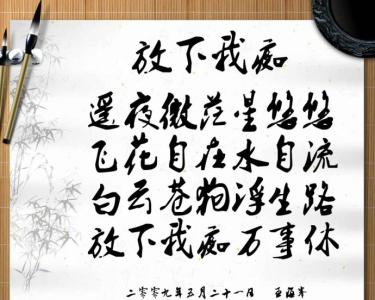 放下我痴
遥夜微茫星悠悠
飞花自在水自流
白云苍狗浮生路
放下我痴万事休
二零零九年五月二十一日 王海岑